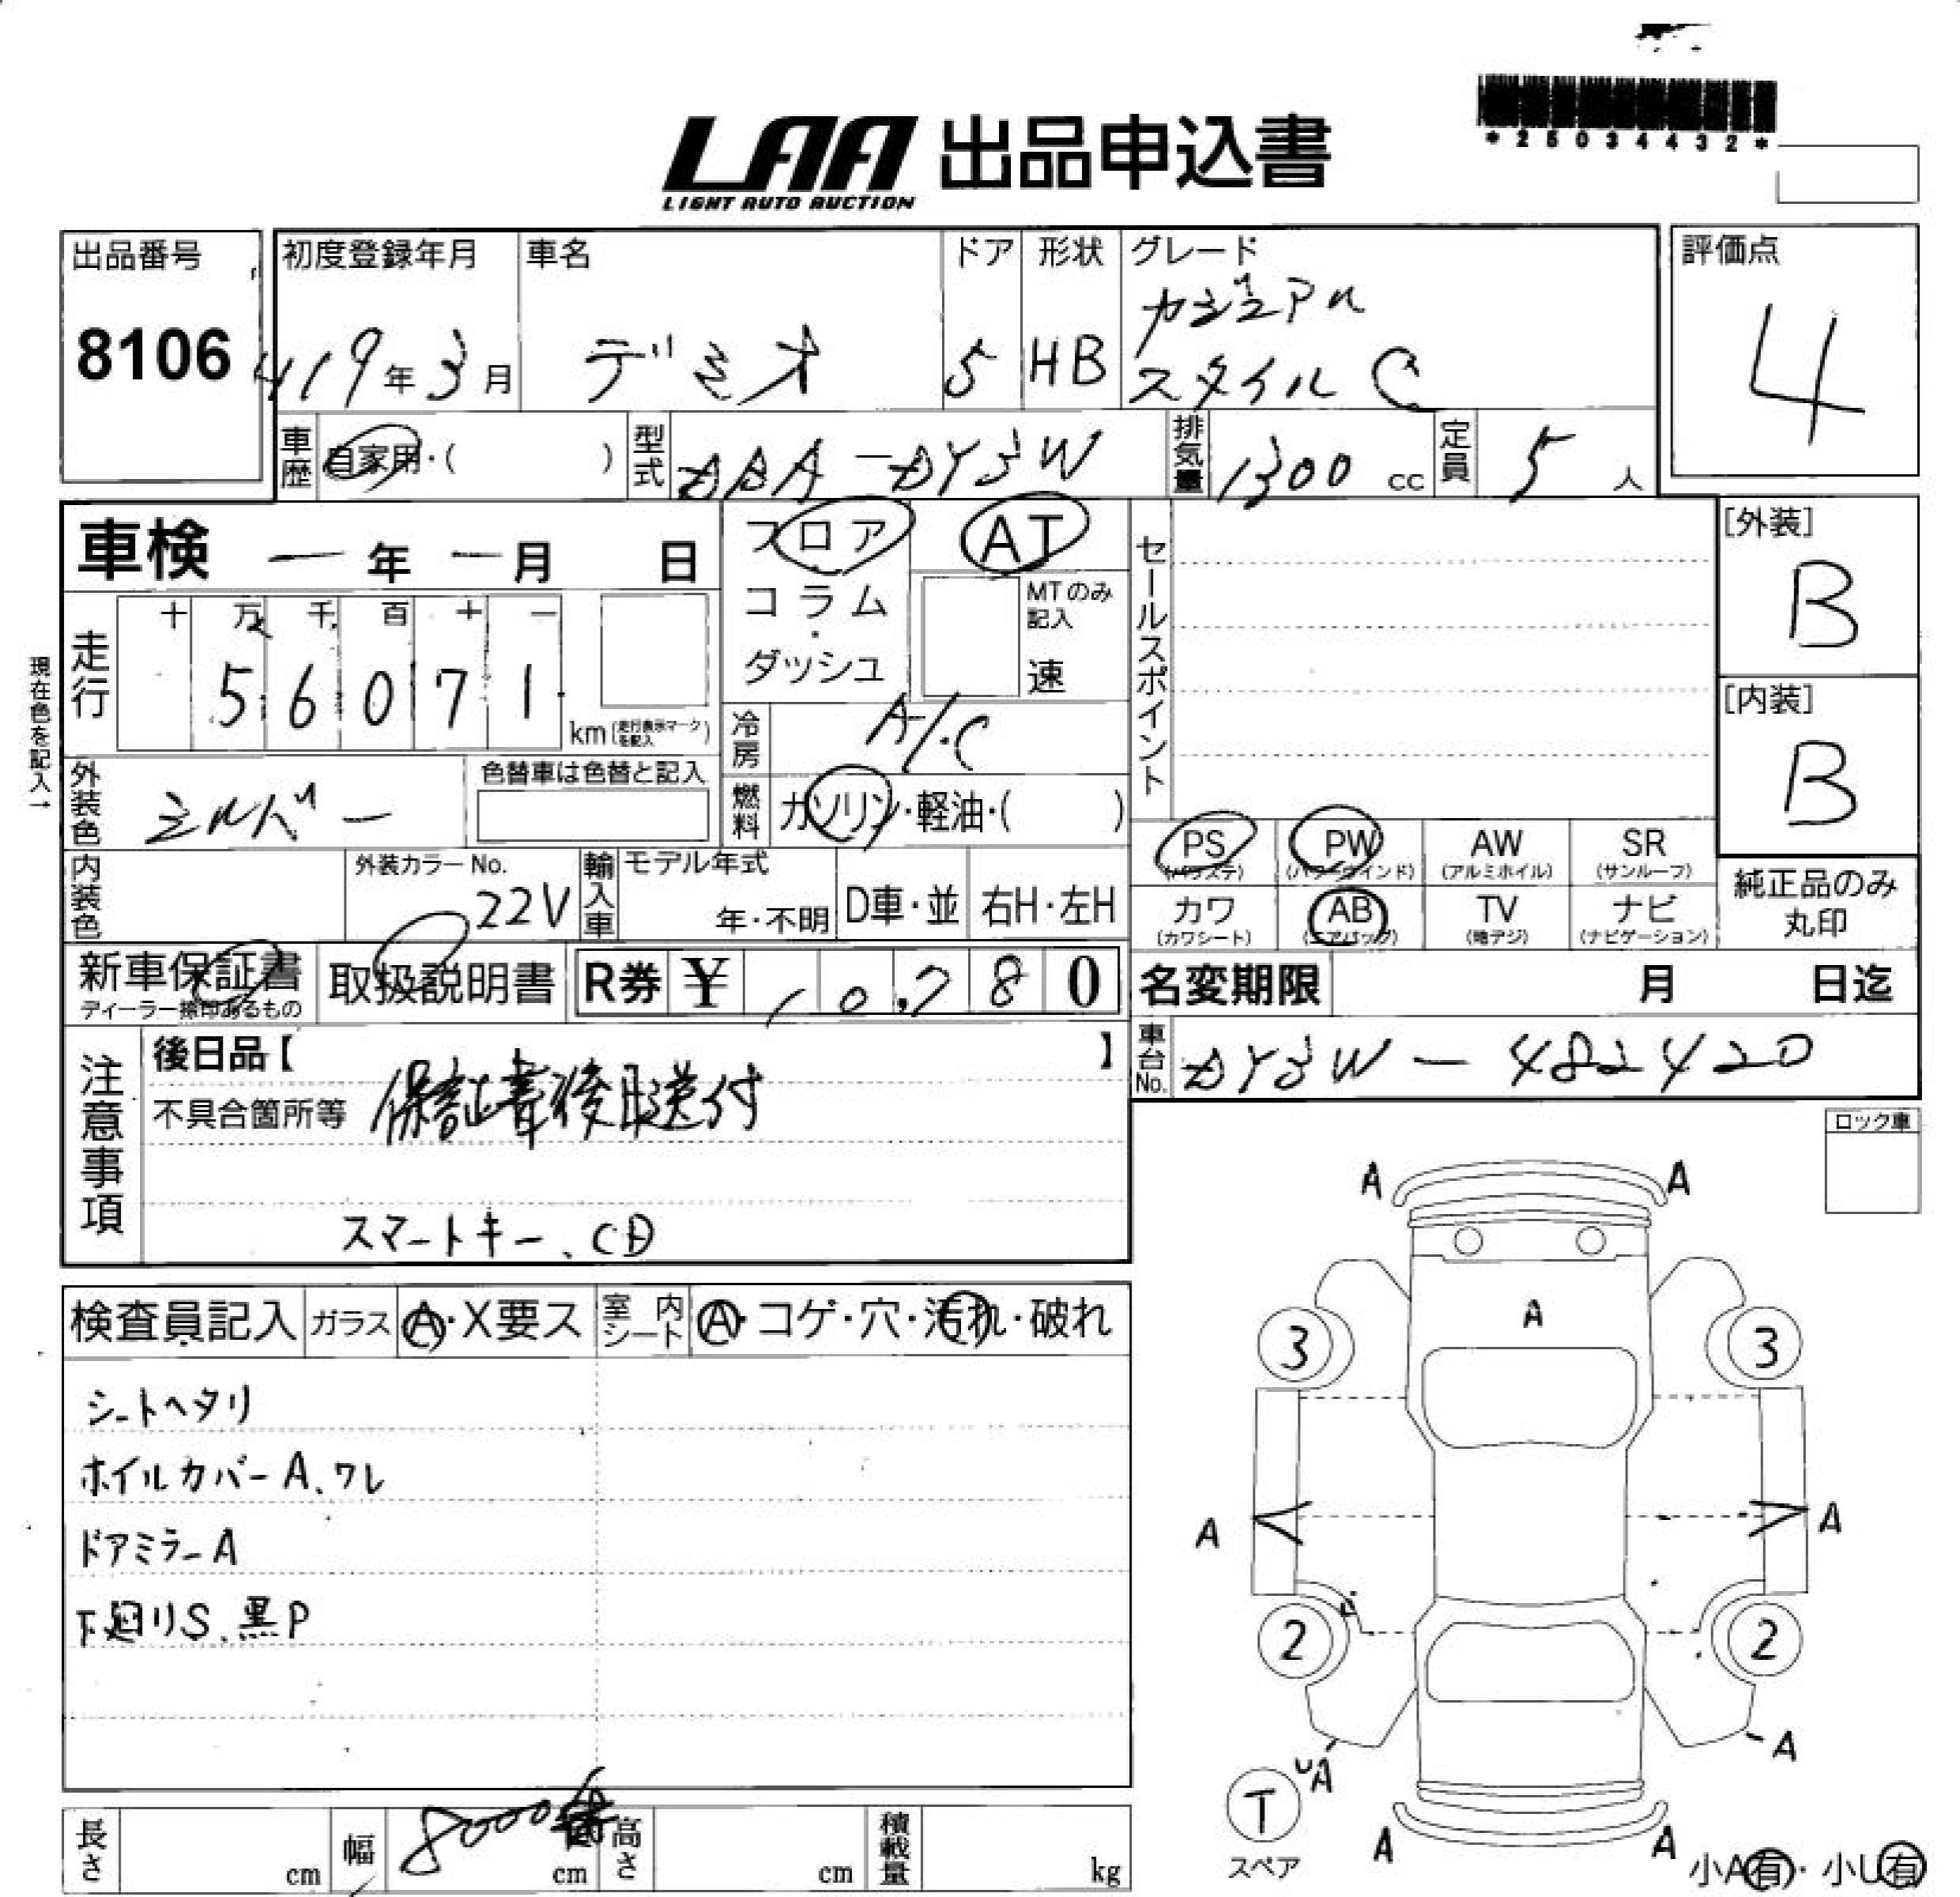 *25034432*
LAA 出品申込書
LIGHT AUTO AUCTION
出品番号
8106
初度登録年月
H19年3月
車名
デミオ
ドア
5
形状
HB
グレード
カジュアル
スタイルC
評価点
4
車歴
自家用・( )
型式
DBA-DY3W
排気量
1300 cc
定員
5人
車検 ー年 ー月 日
フロア
・
コラム
・
ダッシュ
AT
MTのみ
記入
速
セールスポイント
[外装]
B
[内装]
B
現在色を記入→
走行
十 万 千 百 十 一
5 6 0 7 1
km(走行表示マークを記入)
冷房
A/C
燃料
ガソリン・軽油・( )
外装色
シルバー
色替車は色替と記入
内装色
外装カラーNo.
22V
輸入車
モデル年式
年・不明
D車・並
右H・左H
PS
(パワステ)
PW
(パワーウインド)
AW
(アルミホイル)
SR
(サンルーフ)
カワ
(カワシート)
AB
(エアバッグ)
TV
(地デジ)
ナビ
(ナビゲーション)
純正品のみ
丸印
新車保証書
ディーラー捺印あるもの
取扱説明書
R券 ¥ 10,780
名変期限 月 日迄
車台No.
DY3W-482420
注意事項
後日品【 】
不具合箇所等 保証書後日送付
スマートキー、CD
ロック車
検査員記入
ガラス
A・X要ス
室内シート
A・コゲ・穴・汚れ・破れ
シートヘタリ
ホイルカバーA、ワレ
ドアミラーA
下廻りS、黒P
A A
A
3 3
A A
2 2
A
A
T
スペア
A A
小A有・小U有
長さ cm
幅 cm
8000
高さ cm
積載量 kg